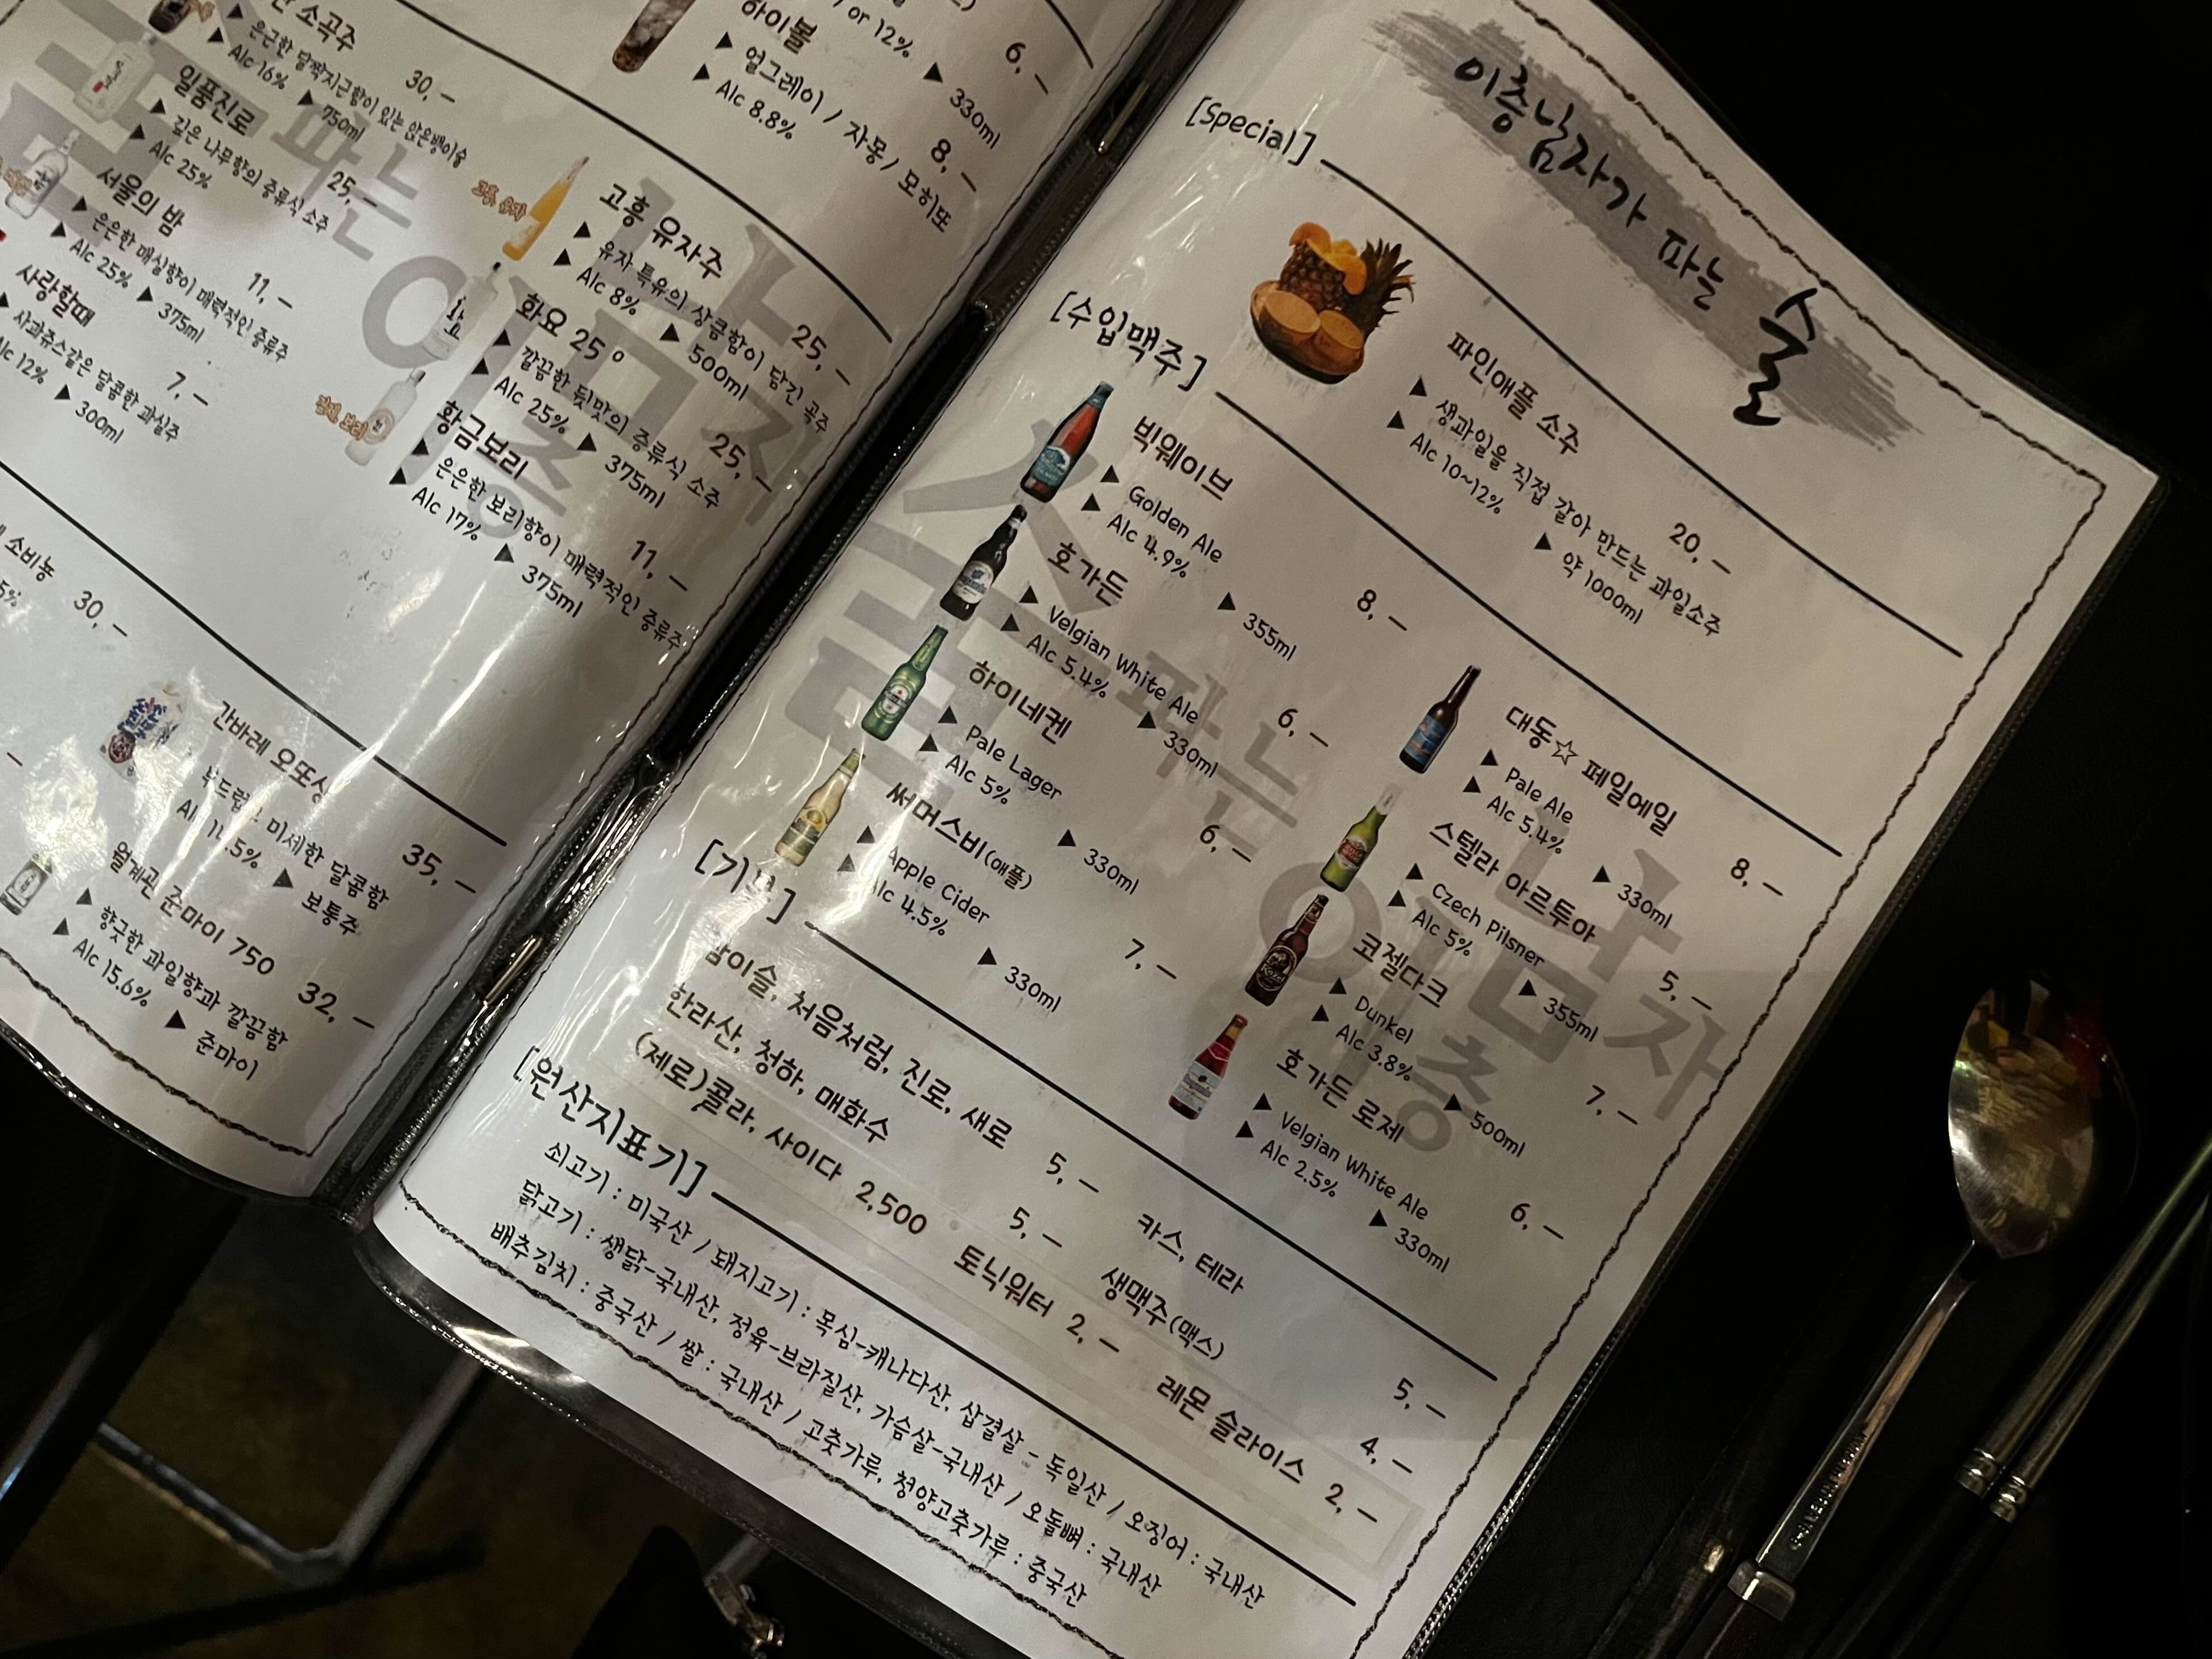 소곡주
▶ 은근한 달짝지근함이 있는 앉은뱅이술
▶ Alc 16% ▶ 750ml
30, –
일품진로
▶ 깊은 나무향의 증류식 소주
▶ Alc 25%
25, –
서울의 밤
▶ 은은한 매실향이 매력적인 증류주
▶ Alc 25% ▶ 375ml
11, –
사랑할때
▶ 사과쥬스같은 달콤한 과실주
Alc 12% ▶ 300ml
7, –
or 12% ▶ 330ml
6, –
하이볼
▶ 얼그레이 / 자몽 / 모히또
▶ Alc 8.8%
8, –
고흥 유자주
▶ 유자 특유의 상큼함이 담긴 곡주
▶ Alc 8% ▶ 500ml
25, –
화요 25°
▶ 깔끔한 뒷맛의 증류식 소주
▶ Alc 25% ▶ 375ml
25, –
황금보리
▶ 은은한 보리향이 매력적인 증류주
▶ Alc 17% ▶ 375ml
11, –
소비뇽
5%
30, –
간바레 오또상
미세한 달콤함
▶ 보통주
35, –
월계관 준마이 750
▶ 향긋한 과일향과 깔끔함
▶ Alc 15.6% ▶ 준마이
32, –
이층남자가 파는 술
[Special]
파인애플 소주
▶ 생과일을 직접 갈아 만드는 과일소주
▶ Alc 10~12% ▶ 약 1000ml
20, –
[수입맥주]
빅웨이브
▶ Golden Ale
▶ Alc 4.9% ▶ 355ml
8, –
호가든
▶ Velgian White Ale
▶ Alc 5.4% ▶ 330ml
6, –
하이네켄
▶ Pale Lager
▶ Alc 5% ▶ 330ml
6, –
써머스비(애플)
▶ Apple Cider
▶ Alc 4.5% ▶ 330ml
7, –
대동☆ 페일에일
▶ Pale Ale
▶ Alc 5.4% ▶ 330ml
8, –
스텔라 아르투아
▶ Czech Pilsner
▶ Alc 5% ▶ 355ml
5, –
코젤다크
▶ Dunkel
▶ Alc 3.8% ▶ 500ml
7, –
호가든 로제
▶ Velgian White Ale
▶ Alc 2.5% ▶ 330ml
6, –
[기본]
참이슬, 처음처럼, 진로, 새로 5, –
한라산, 청하, 매화수 5, –
카스, 테라 5, –
생맥주(맥스) 4, –
(제로)콜라, 사이다 2,500 토닉워터 2, – 레몬 슬라이스 2, –
[원산지표기]
쇠고기 : 미국산 / 돼지고기 : 목심-캐나다산, 삼겹살 - 독일산 / 오징어 : 국내산
닭고기 : 생닭-국내산, 정육-브라질산, 가슴살-국내산 / 오돌뼈 : 국내산
배추김치 : 중국산 / 쌀 : 국내산 / 고춧가루, 청양고춧가루 : 중국산